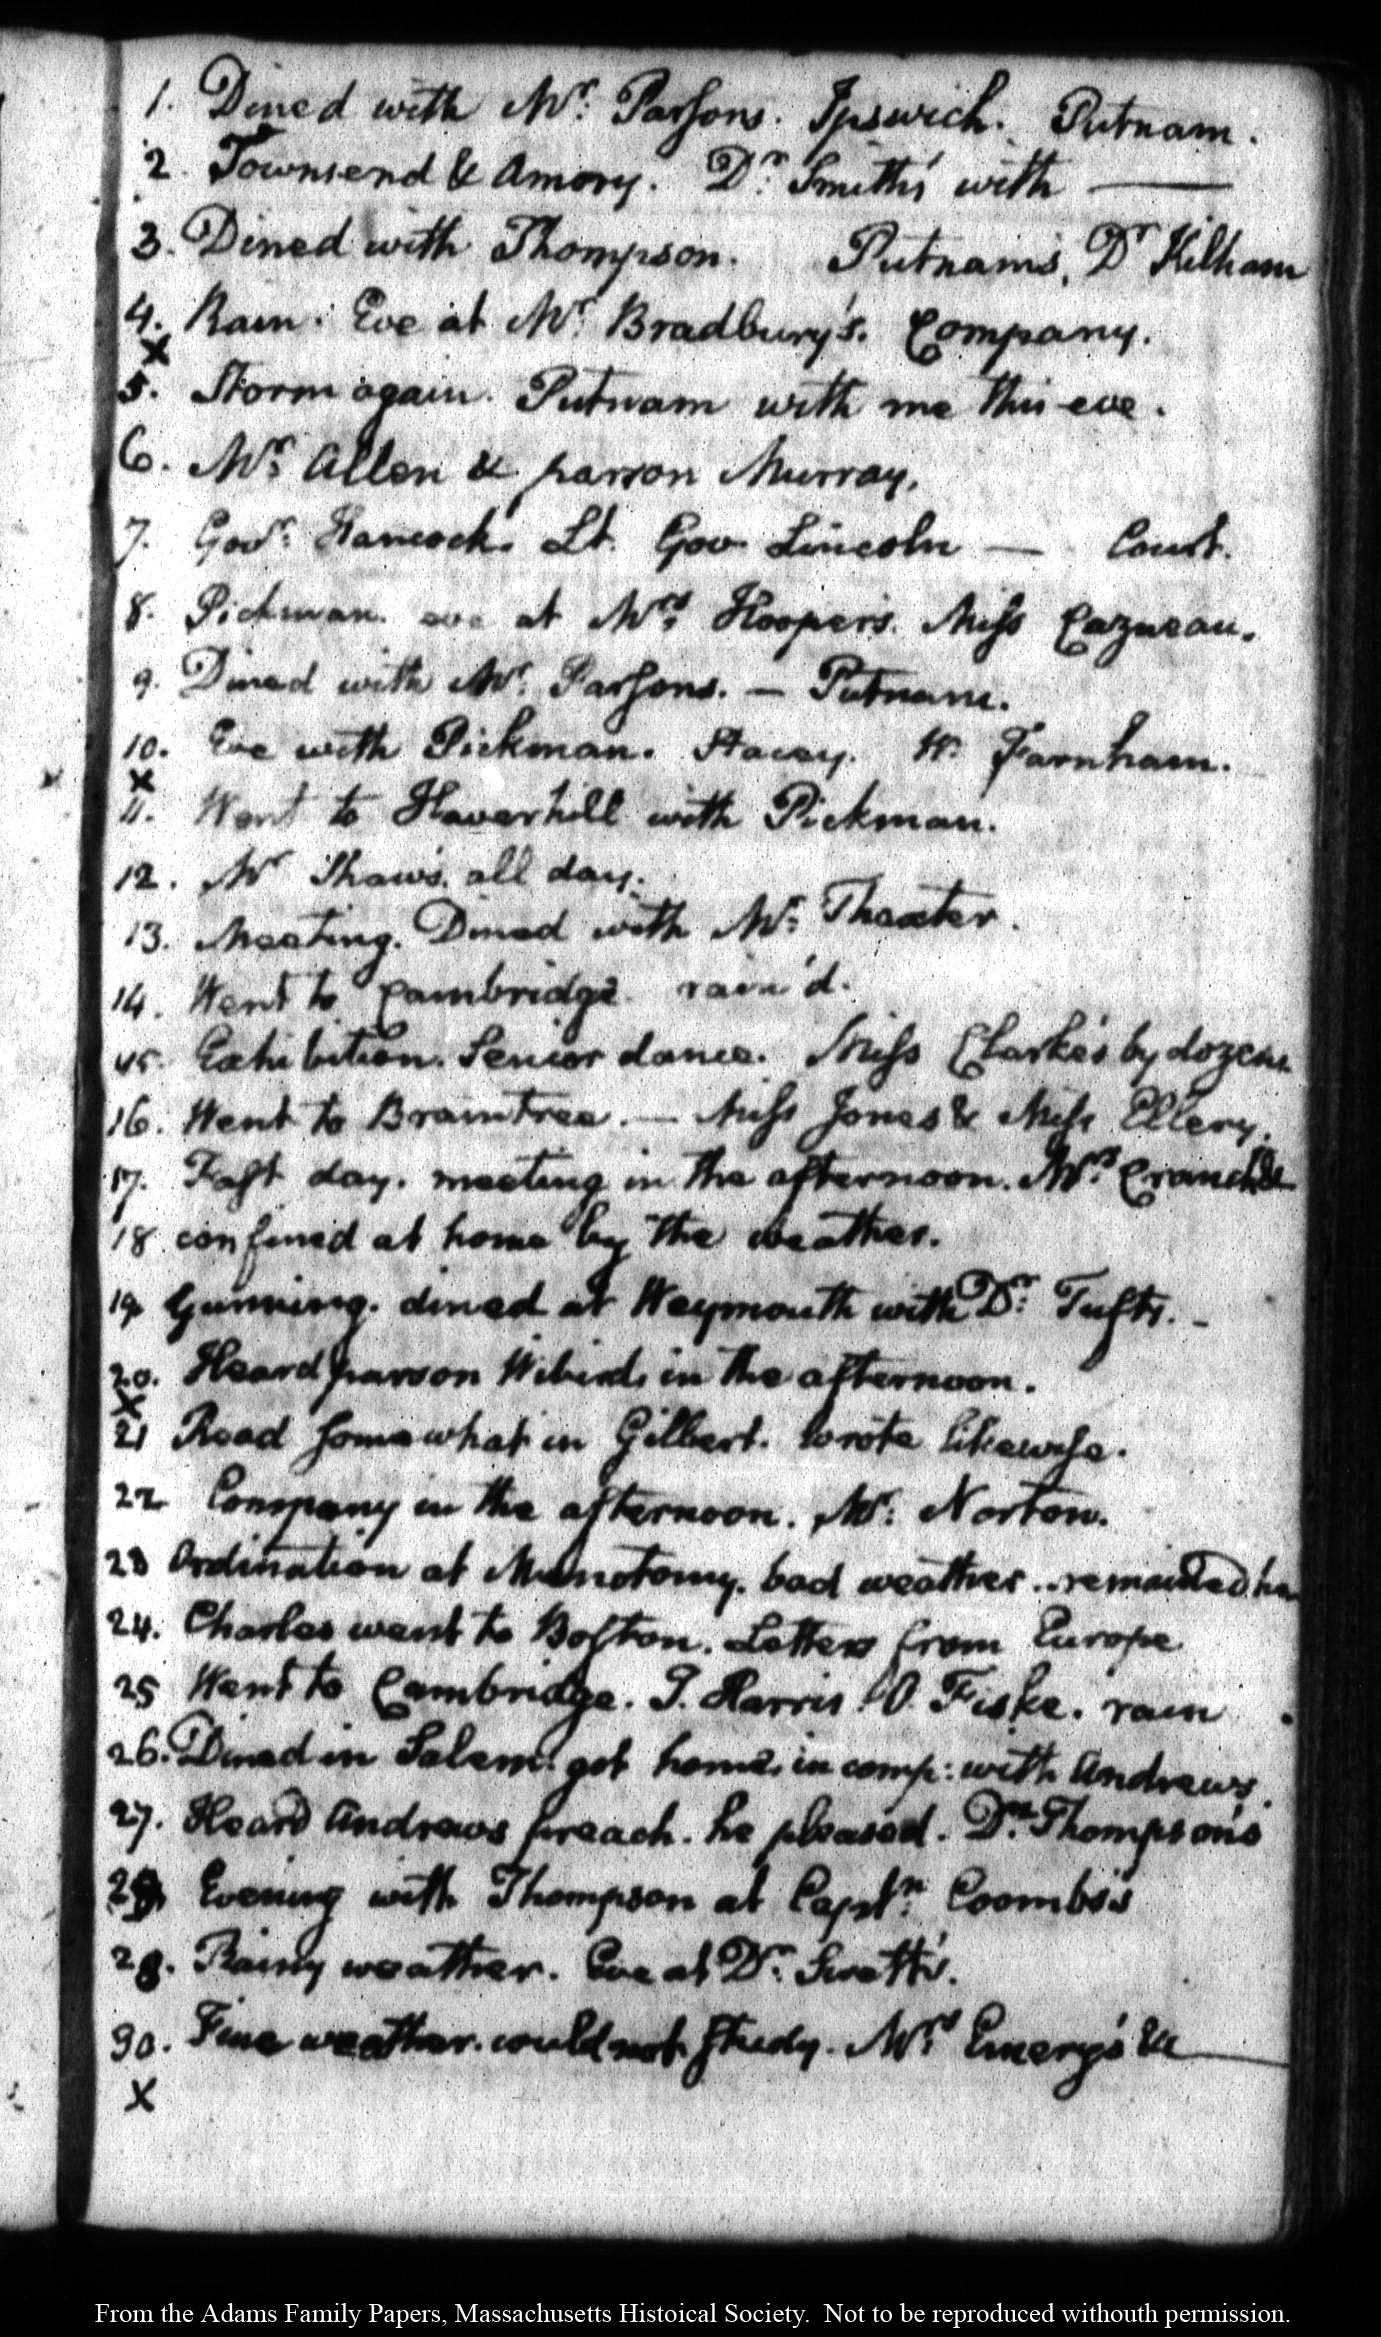 1. Dined with Mr. Parsons. Ipswich. Putnam.
2. Townsend & Amory. Dr. Smith's with ———
3. Dined with Thompson. Putnam's, Dr Kilham
4. Rain. Eve at Mr. Bradbury's. Company.
X
5. Storm again. Putnam with me this eve.
6. Mr. Allen & parson Murray.
7. Govr. Hancock. Lt. Gov Lincoln — Court.
8. Pickman. eve at Mrs. Hooper's. Miss Cazneau.
9. Dined with Mr. Parsons. — Putnam.
10. Eve with Pickman. Stacey. W. Farnham.
X
11. Went to Haverhill with Pickman.
12. Mr Shaw's. all day.
13. Meeting. Dined with Mr. Thaxter.
14. Went to Cambridge. rain'd.
15. Exhibition. Senior dance. Miss Clarke's by dozens
16. Went to Braintree. — Miss Jones & Miss Ellery.
17. Fast day. meeting in the afternoon. Mrs. Cranch &c
18 confined at home by the weather.
19 Gunning. dined at Weymouth with Dr. Tufts. —
20. Heard parson Wibird in the afternoon.
X
21 Read somewhat in Gilbert. wrote likewise.
22 Company in the afternoon. Mr. Norton.
23 Ordination at Menotomy. bad weather.. remained
24. Charles went to Boston. Letters from Europe
25 Went to Cambridge. T. Harris. O. Fiske. rain.
26. Dined in Salem: got home. in comp: with Andrews.
27. Heard Andrews preach. he pleased. Dn. Thompson's
29 Evening with Thompson at Captn. Coombs's
28. Rainy weather. Eve at Dr. Swett's.
30. Fine weather. could not study. Mrs Emery's &c ———
X
From the Adams Family Papers, Massachusetts Histoical Society. Not to be reproduced withouth permission.